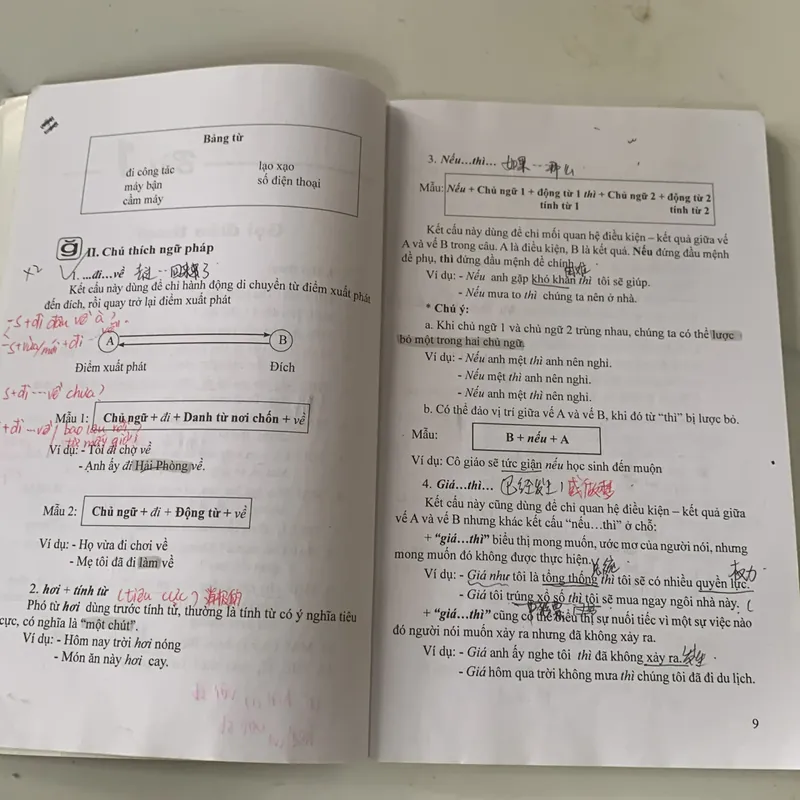 Bảng từ
đi công tác
máy bận
cầm máy
lạo xạo
số điện thoại
II. Chú thích ngữ pháp
x2
1. ...đi...về
Kết cấu này dùng để chỉ hành động di chuyển từ điểm xuất phát
đến đích, rồi quay trở lại điểm xuất phát
-S+đi đâu về à?
A
B
Điểm xuất phát
Đích
S+đi...về chưa?
Mẫu 1:
Chủ ngữ + đi + Danh từ nơi chốn + về
Ví dụ: - Tôi đi chợ về
- Anh ấy đi Hải Phòng về.
Mẫu 2:
Chủ ngữ + đi + Động từ + về
Ví dụ: - Họ vừa đi chơi về
- Mẹ tôi đã đi làm về
2. hơi + tính từ (tiêu cực) 消极的
Phó từ hơi dùng trước tính từ, thường là tính từ có ý nghĩa tiêu
cực, có nghĩa là "một chút".
Ví dụ: - Hôm nay trời hơi nóng
- Món ăn này hơi cay.
3. Nếu...thì... 如果...那么
Mẫu:
Nếu + Chủ ngữ 1 + động từ 1 thì + Chủ ngữ 2 + động từ 2
tính từ 1 tính từ 2
Kết cấu này dùng để chỉ mối quan hệ điều kiện – kết quả giữa vế
A và vế B trong câu. A là điều kiện, B là kết quả. Nếu đứng đầu mệnh
đề phụ, thì đứng đầu mệnh đề chính.
困难
Ví dụ: - Nếu anh gặp khó khăn thì tôi sẽ giúp.
- Nếu mưa to thì chúng ta nên ở nhà.
* Chú ý:
a. Khi chủ ngữ 1 và chủ ngữ 2 trùng nhau, chúng ta có thể lược
bỏ một trong hai chủ ngữ.
Ví dụ: - Nếu anh mệt thì anh nên nghỉ.
- Nếu mệt thì anh nên nghỉ.
- Nếu anh mệt thì nên nghỉ.
b. Có thể đảo vị trí giữa vế A và vế B, khi đó từ "thì" bị lược bỏ.
Mẫu:
B + nếu + A
Ví dụ: Cô giáo sẽ tức giận nếu học sinh đến muộn
4. Giá...thì... 已经发生
Kết cấu này cũng dùng để chỉ quan hệ điều kiện – kết quả giữa
vế A và vế B nhưng khác kết cấu "nếu...thì" ở chỗ:
+ "giá...thì" biểu thị mong muốn, ước mơ của người nói, nhưng
mong muốn đó không được thực hiện.
总统
权力
Ví dụ: - Giá như tôi là tổng thống thì tôi sẽ có nhiều quyền lực.
- Giá tôi trúng xổ số thì tôi sẽ mua ngay ngôi nhà này.
+ "giá...thì" cũng có thể biểu thị sự nuối tiếc vì một sự việc nào
đó người nói muốn xảy ra nhưng đã không xảy ra.
Ví dụ: - Giá anh ấy nghe tôi thì đã không xảy ra. 发生
- Giá hôm qua trời không mưa thì chúng tôi đã đi du lịch.
9